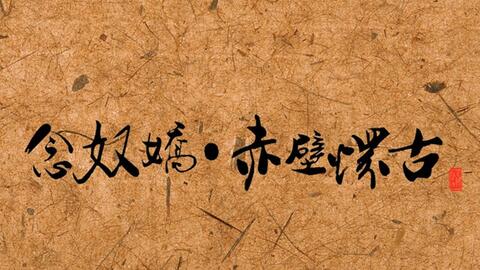 念奴嬌·赤壁懷古